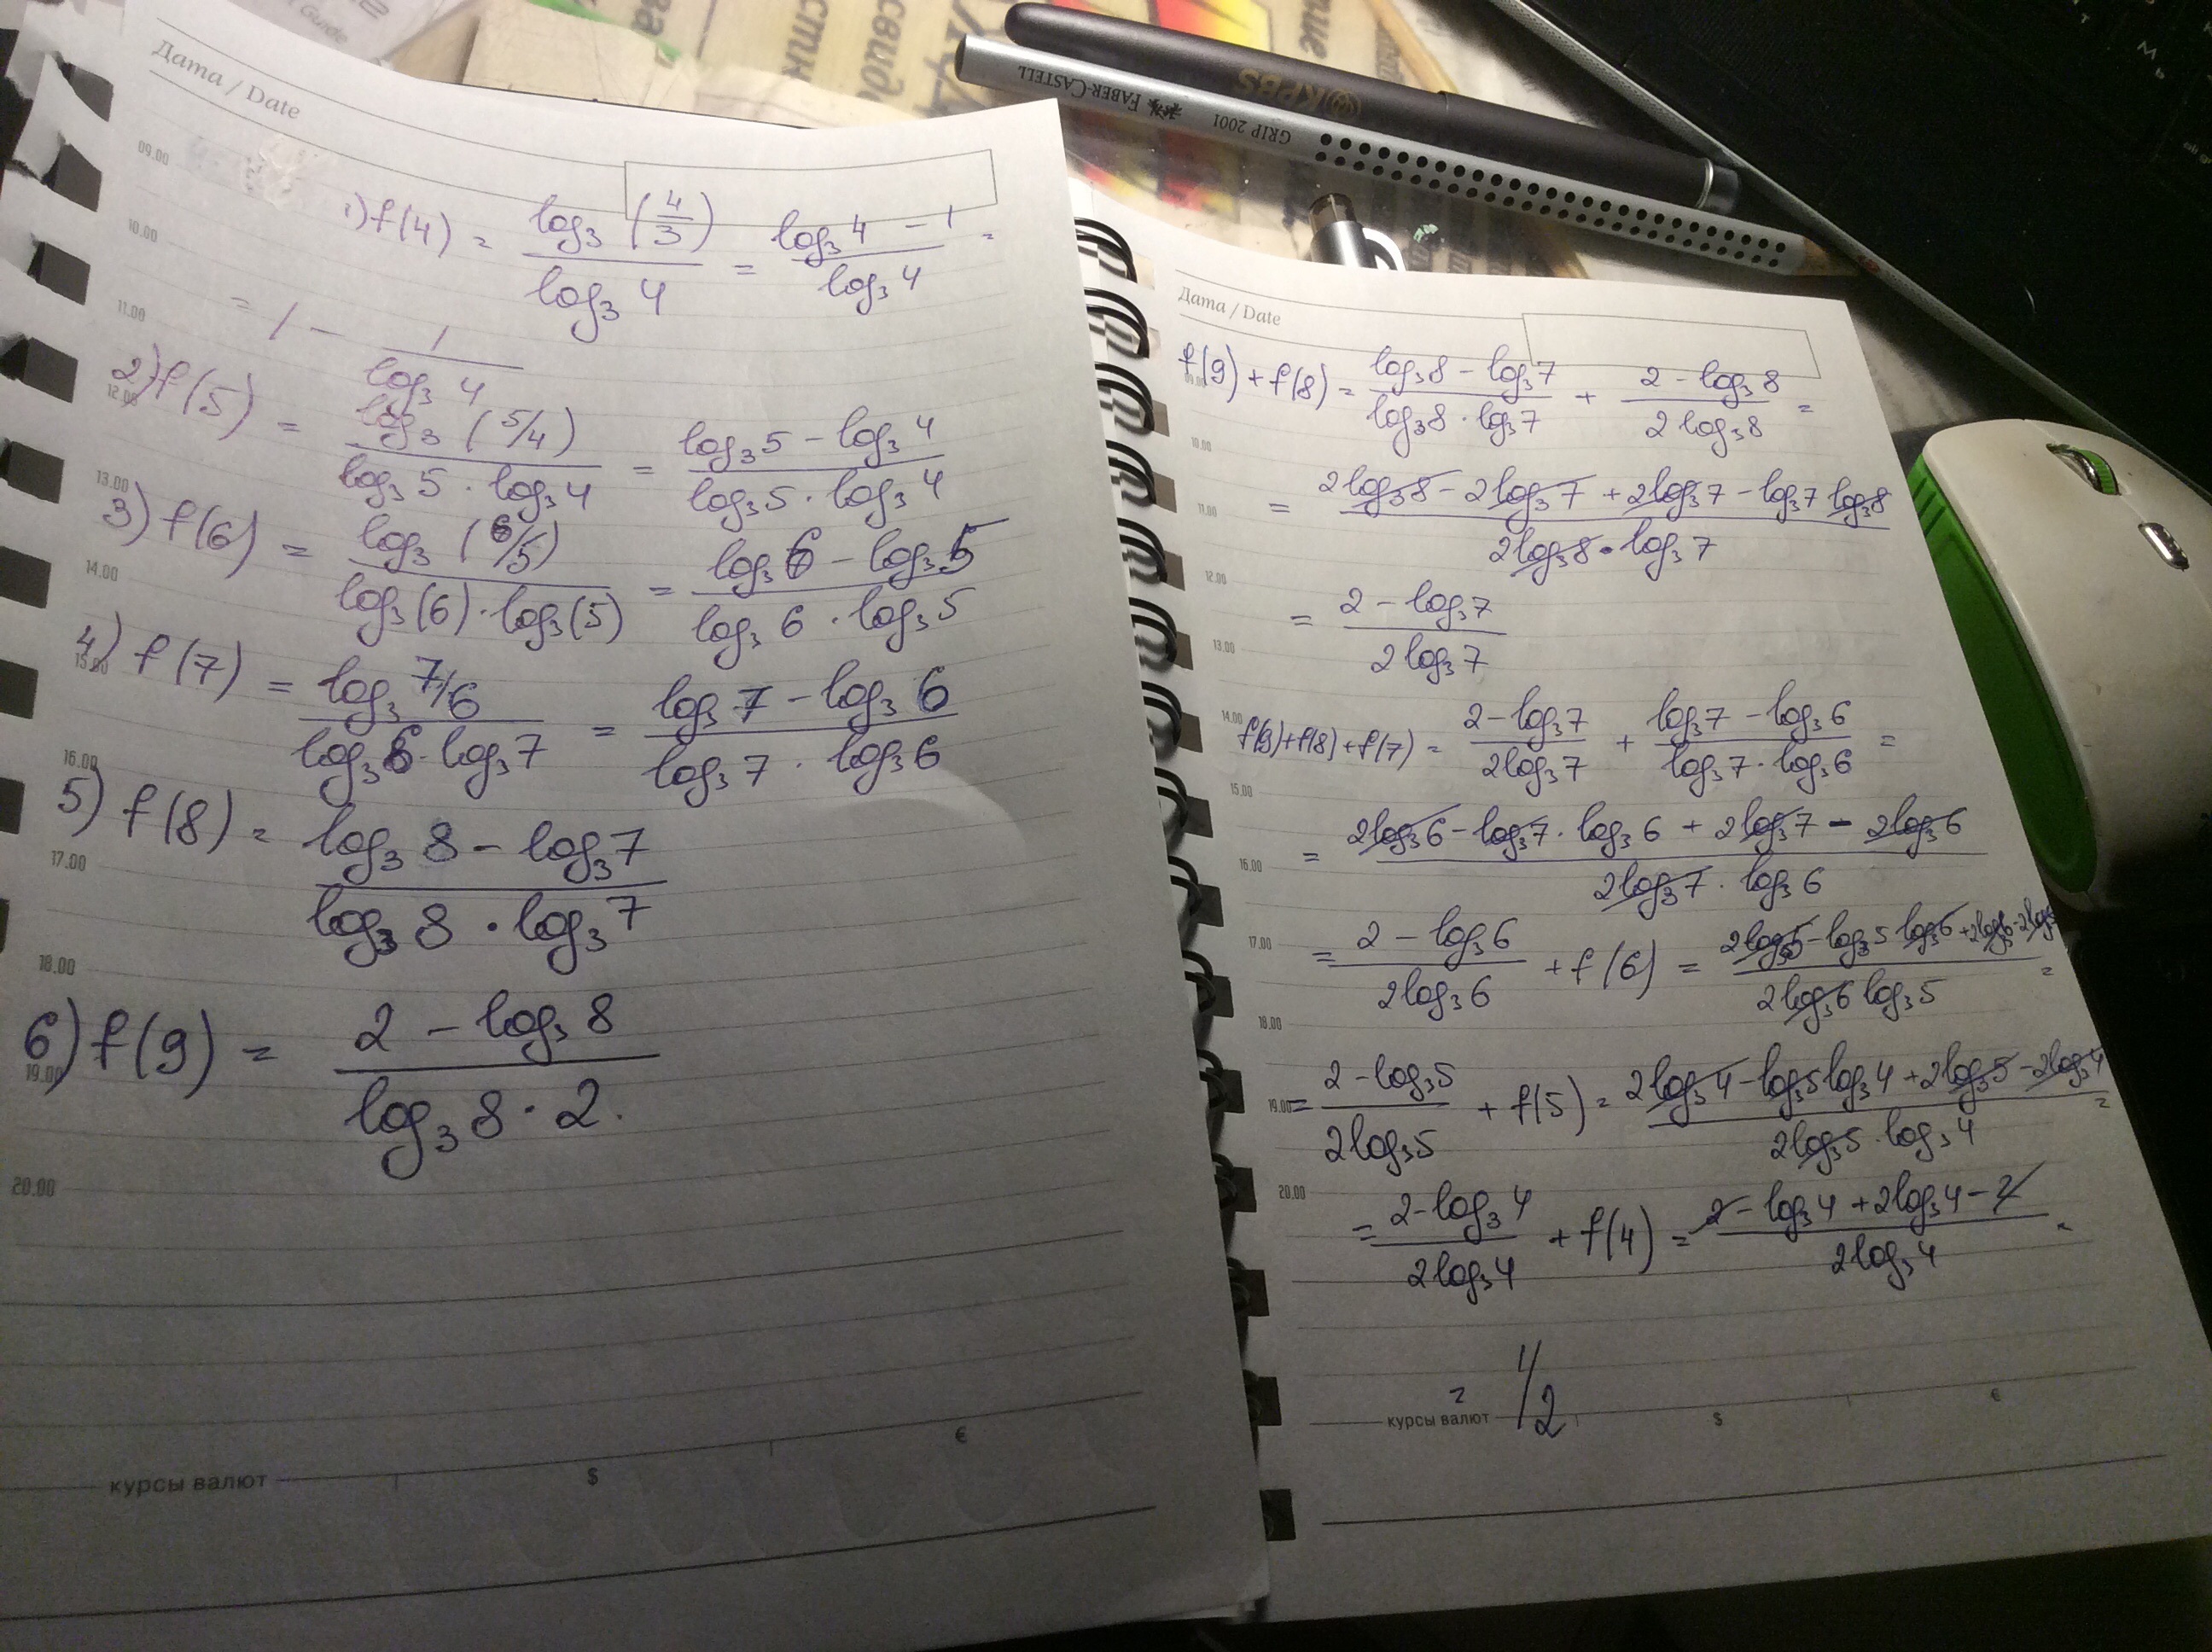 Дата / Date
09.00
1) f(4) = log₃(4/3) / log₃4 = (log₃4 - 1) / log₃4 =
10.00
= 1 - 1 / log₃4
11.00
2) f(5) = log₃(5/4) / (log₃5 · log₃4) = (log₃5 - log₃4) / (log₃5 · log₃4)
12.00
13.00
3) f(6) = log₃(6/5) / (log₃(6) · log₃(5)) = (log₃6 - log₃5) / (log₃6 · log₃5)
14.00
4) f(7) = log₃7/6 / (log₃6 · log₃7) = (log₃7 - log₃6) / (log₃7 · log₃6)
15.00
16.00
5) f(8) = (log₃8 - log₃7) / (log₃8 · log₃7)
17.00
18.00
6) f(9) = (2 - log₃8) / (log₃8 · 2)
19.00
20.00
курсы валют $ €
Дата / Date
f(9) + f(8) = (log₃8 - log₃7) / (log₃8 · log₃7) + (2 - log₃8) / (2log₃8) =
09.00
10.00
= (2log₃8 - 2log₃7 + 2log₃7 - log₃7 log₃8) / (2log₃8 · log₃7)
11.00
12.00
= (2 - log₃7) / (2log₃7)
13.00
14.00
f(9)+f(8)+f(7) = (2 - log₃7) / (2log₃7) + (log₃7 - log₃6) / (log₃7 · log₃6) =
15.00
= (2log₃6 - log₃7 · log₃6 + 2log₃7 - 2log₃6) / (2log₃7 · log₃6)
16.00
17.00
= (2 - log₃6) / (2log₃6) + f(6) = (2log₃5 - log₃5 log₃6 + 2log₃6 - 2log₃5) / (2log₃6 log₃5) =
18.00
19.00
= (2 - log₃5) / (2log₃5) + f(5) = (2log₃4 - log₃5 log₃4 + 2log₃5 - 2log₃4) / (2log₃5 · log₃4) =
20.00
= (2 - log₃4) / (2log₃4) + f(4) = (2 - log₃4 + 2log₃4 - 2) / (2log₃4) =
= 1/2
курсы валют $ €
FABER-CASTELL
GRIP 2001
KPBS
Guide